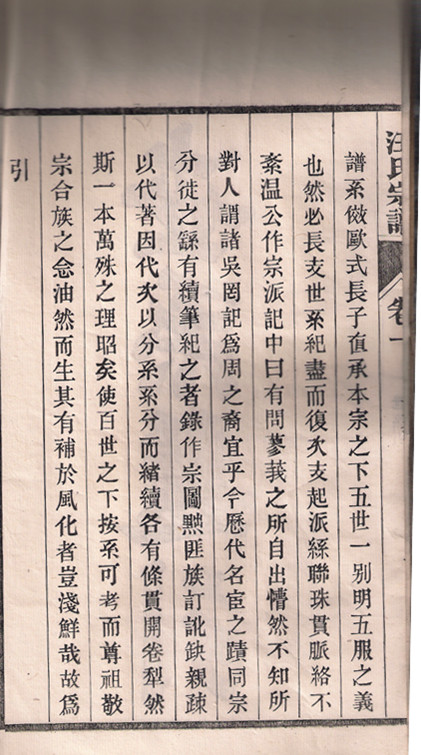 汪氏宗譜
卷一
譜系倣歐式長子直承本宗之下五世一别明五服之義
也然必長支世系紀盡而復次支起派絲聯珠貫脈絡不
紊温公作宗派記中曰有問蓼莪之所自出懵然不知所
對人謂諸吳罔記爲周之裔宜乎今歷代名宦之蹟同宗
分徙之繇有續筆紀之者錄作宗圖黙匪族訂訛缺親疎
以代著因代次以分系系分而緒續各有條貫開卷犁然
斯一本萬殊之理昭矣使百世之下按系可考而尊祖敬
宗合族之念油然而生其有補於風化者豈淺鮮哉故爲
引